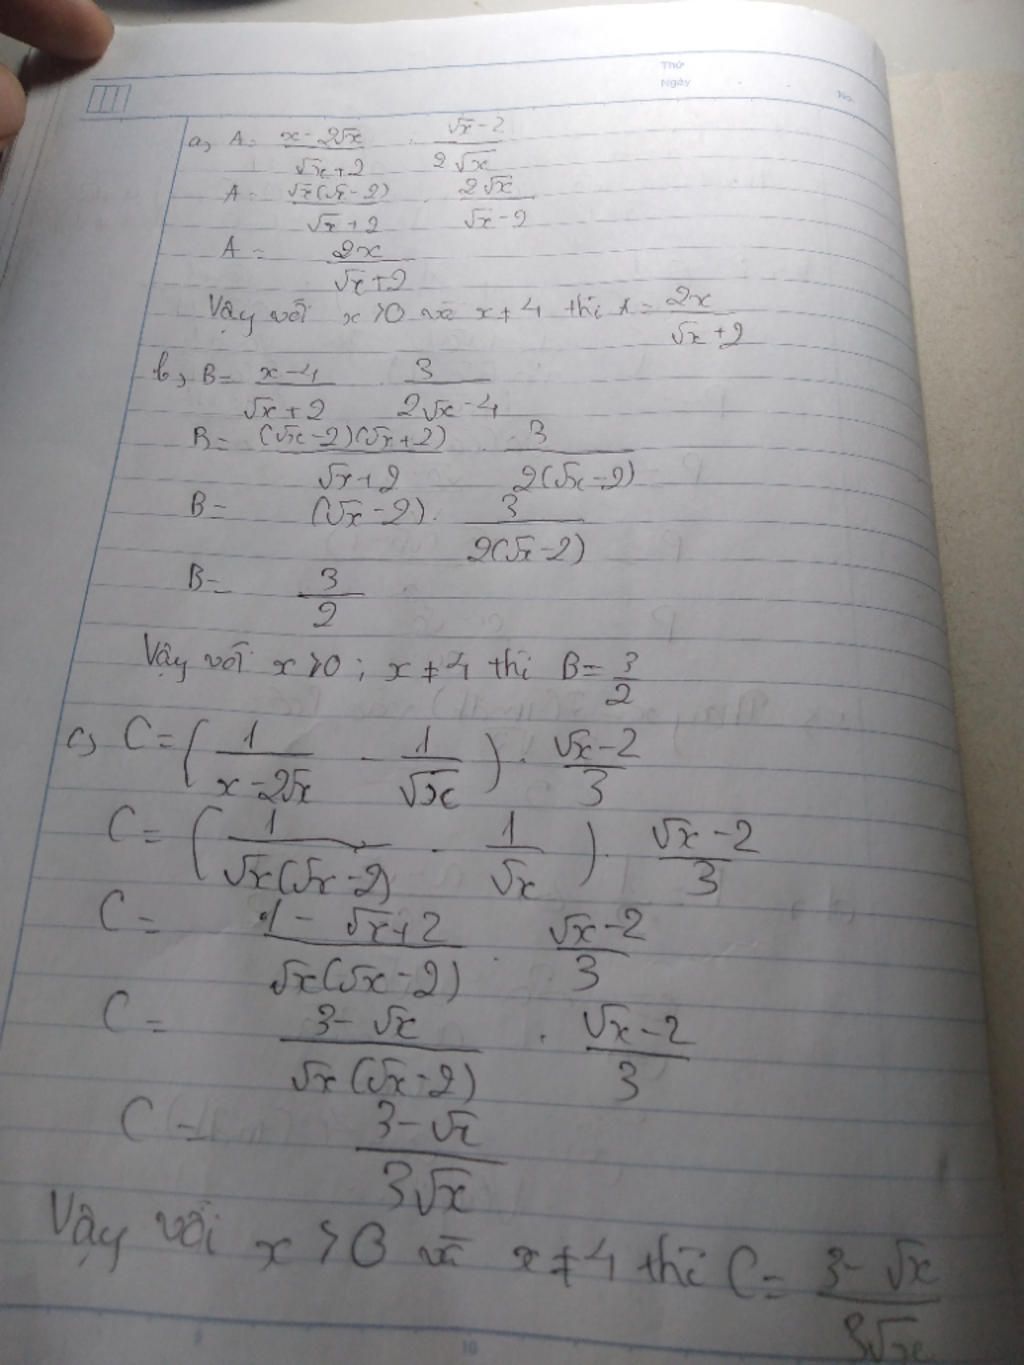 Thứ
Ngày
No.
a, A = \frac{x-2\sqrt{x}}{\sqrt{x}+2} : \frac{\sqrt{x}-2}{2\sqrt{x}}
A = \frac{\sqrt{x}(\sqrt{x}-2)}{\sqrt{x}+2} . \frac{2\sqrt{x}}{\sqrt{x}-2}
A = \frac{2x}{\sqrt{x}+2}
Vậy với x > 0 và x ≠ 4 thì A = \frac{2x}{\sqrt{x}+2}
b, B = \frac{x-4}{\sqrt{x}+2} . \frac{3}{2\sqrt{x}-4}
B = \frac{(\sqrt{x}-2)(\sqrt{x}+2)}{\sqrt{x}+2} . \frac{3}{2(\sqrt{x}-2)}
B = (\sqrt{x}-2) . \frac{3}{2(\sqrt{x}-2)}
B = \frac{3}{2}
Vậy với x > 0 ; x ≠ 4 thì B = \frac{3}{2}
c, C = ( \frac{1}{x-2\sqrt{x}} - \frac{1}{\sqrt{x}} ) . \frac{\sqrt{x}-2}{3}
C = ( \frac{1}{\sqrt{x}(\sqrt{x}-2)} - \frac{1}{\sqrt{x}} ) . \frac{\sqrt{x}-2}{3}
C = \frac{1-\sqrt{x}+2}{\sqrt{x}(\sqrt{x}-2)} . \frac{\sqrt{x}-2}{3}
C = \frac{3-\sqrt{x}}{\sqrt{x}(\sqrt{x}-2)} . \frac{\sqrt{x}-2}{3}
C = \frac{3-\sqrt{x}}{3\sqrt{x}}
Vậy với x > 0 và x ≠ 4 thì C = \frac{3-\sqrt{x}}{3\sqrt{x}}